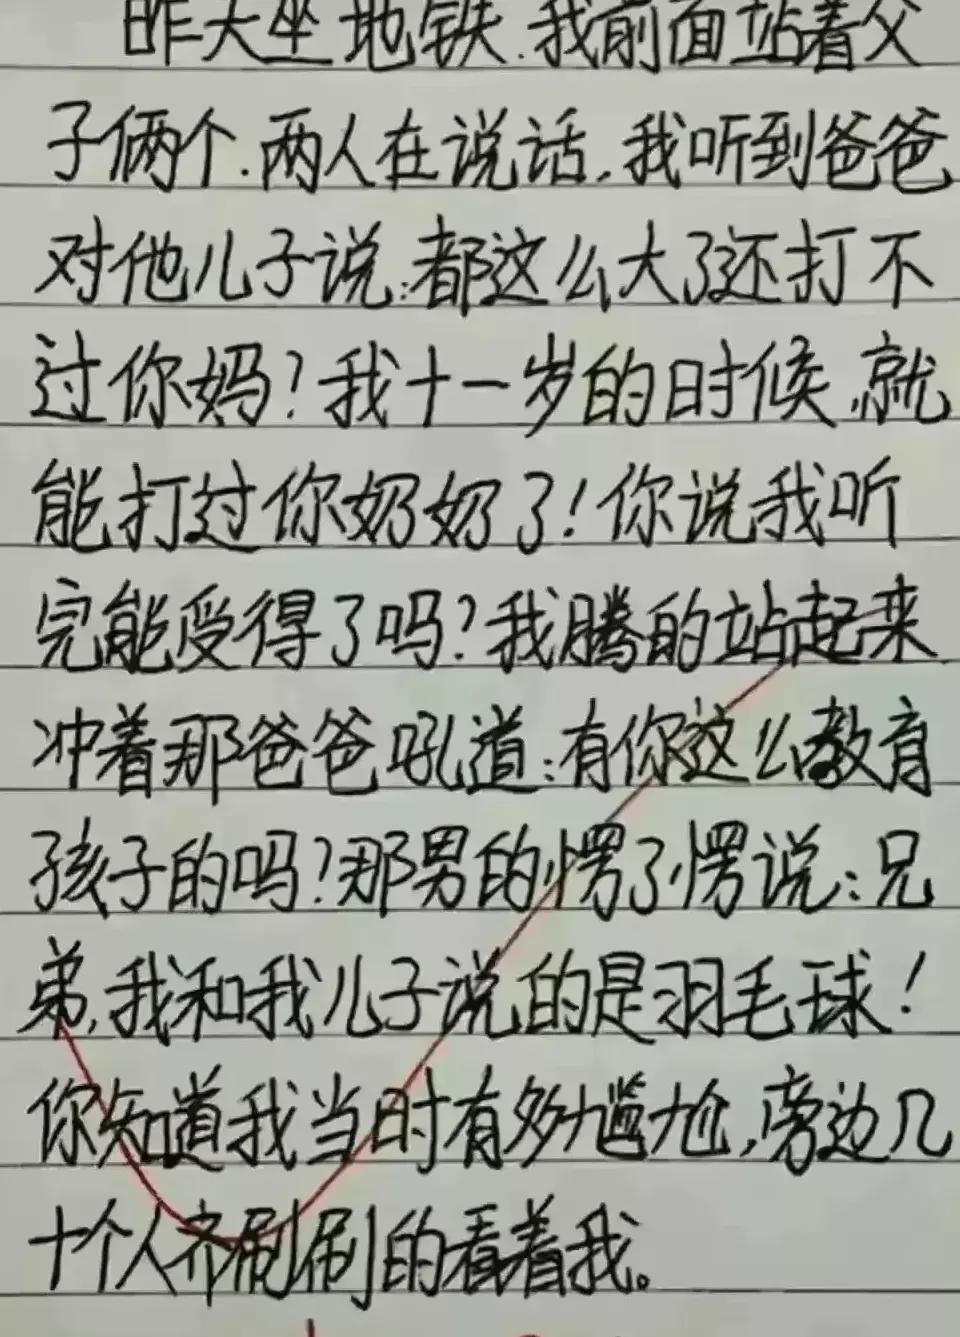 昨天坐地铁.我前面站着父
子俩个.两人在说话,我听到爸爸
对他儿子说:都这么大了还打不
过你妈?我十一岁的时候,就
能打过你奶奶了!你说我听
完能受得了吗?我腾的站起来
冲着那爸爸吼道:有你这么教育
孩子的吗?那男的愣了愣说:兄
弟,我和我儿子说的是羽毛球!
你知道我当时有多尴尬,旁边几
十个人齐刷刷的看着我。